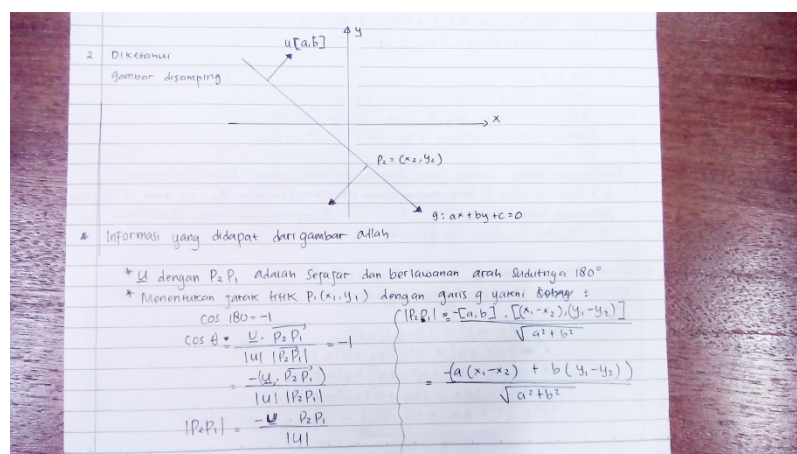 u[a,b]
y
2 Diketahui
gambar disamping
x
P₂ = (x₂, y₂)
g: ax + by + c = 0
* Informasi yang didapat dari gambar adlah
* u dengan P₂P₁ adalah sejajar dan berlawanan arah sudutnya 180°
* Menentukan jarak titik P₁(x₁,y₁) dengan garis g yakni :
cos 180 = -1
cos θ = u . P₂P₁ / |u| |P₂P₁| = -1
= -(u . P₂P₁) / |u| |P₂P₁|
|P₂P₁| = -u . P₂P₁ / |u|
|P₂P₁| = -[a,b] . [(x₁-x₂),(y₁-y₂)] / √a²+b²
= -(a(x₁-x₂) + b(y₁-y₂)) / √a²+b²